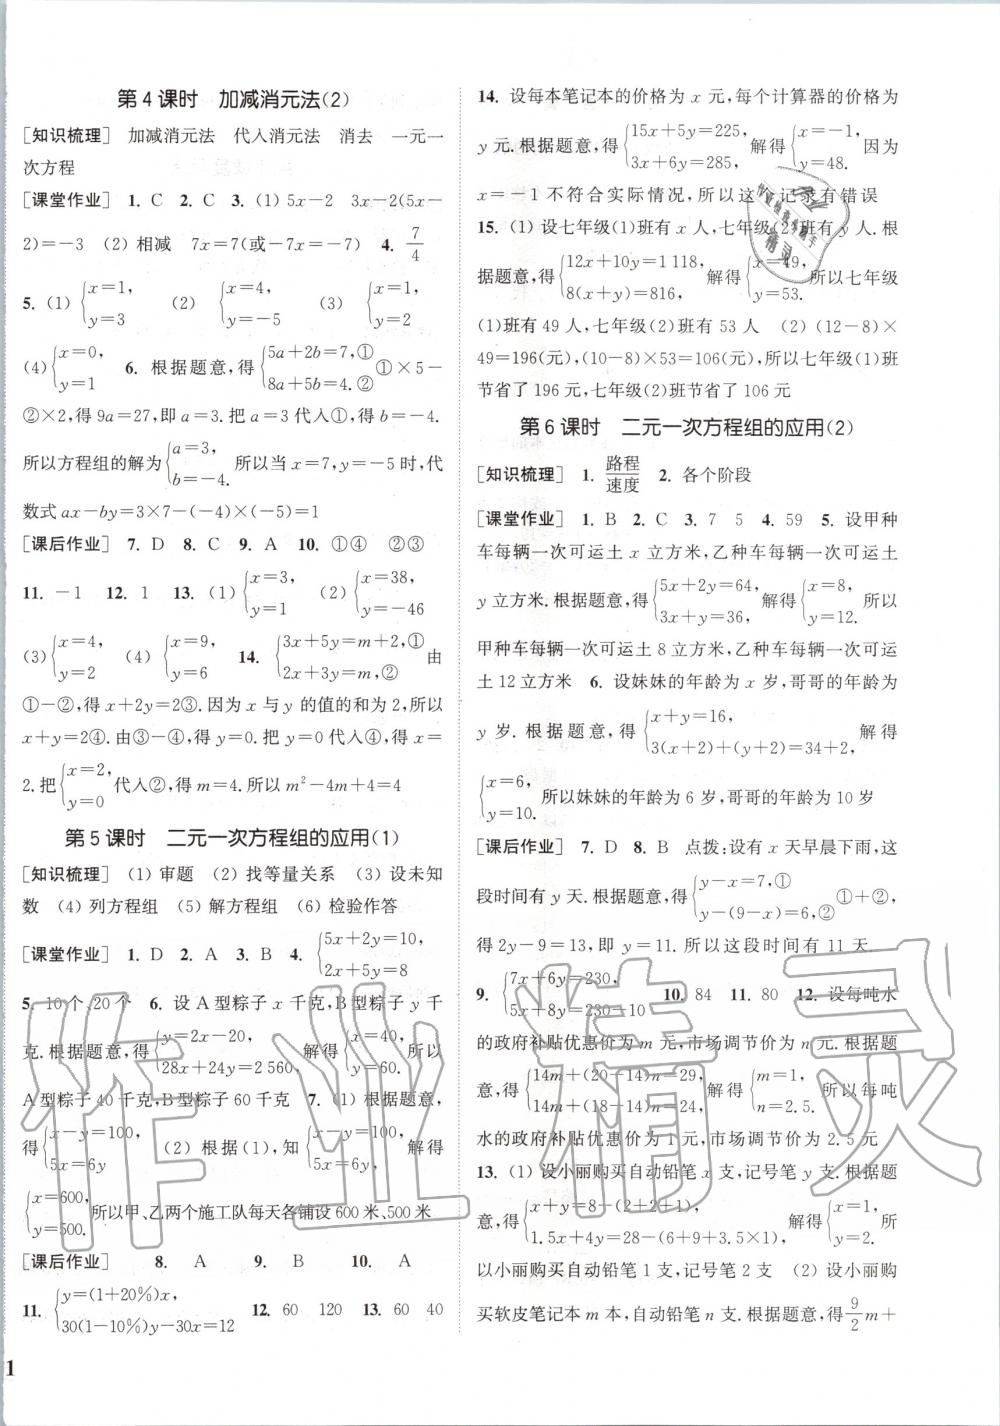 第4课时 加减消元法(2)
[知识梳理] 加减消元法 代入消元法 消去 一元一
次方程
[课堂作业] 1. C 2. C 3. (1) 5x－2 3x－2(5x－
2)=－3 (2) 相减 7x=7(或－7x=－7) 4. 7/4
5. (1) {x=1, y=3 (2) {x=4, y=－5 (3) {x=1, y=2
(4) {x=0, y=1 6. 根据题意,得{5a+2b=7,① 8a+5b=4.② ①×5－
②×2,得 9a=27,即 a=3. 把 a=3 代入①,得 b=－4.
所以方程组的解为{a=3, b=－4. 所以当 x=7,y=－5 时,代
数式 ax－by=3×7－(－4)×(－5)=1
[课后作业] 7. D 8. C 9. A 10. ①④ ②③
11. －1 12. 1 13. (1) {x=3, y=1 (2) {x=38, y=－46
(3) {x=4, y=2 (4) {x=9, y=6 14. {3x+5y=m+2,① 2x+3y=m.② 由
①－②,得 x+2y=2③. 因为 x 与 y 的值的和为 2,所以
x+y=2④. 由③－④,得 y=0. 把 y=0 代入④,得 x=
2. 把{x=2, y=0 代入②,得 m=4. 所以 m²－4m+4=4
第5课时 二元一次方程组的应用(1)
[知识梳理] (1) 审题 (2) 找等量关系 (3) 设未知
数 (4) 列方程组 (5) 解方程组 (6) 检验作答
[课堂作业] 1. D 2. A 3. B 4. {5x+2y=10, 2x+5y=8
5. 10个 20个 6. 设 A 型粽子 x 千克,B 型粽子 y 千
克. 根据题意,得{y=2x－20, 28x+24y=2 560, 解得{x=40, y=60. 所以
A 型粽子 40 千克,B 型粽子 60 千克 7. (1) 根据题意,
得{x－y=100, 5x=6y (2) 根据(1),知{x－y=100, 5x=6y. 解得
{x=600, y=500. 所以甲、乙两个施工队每天各铺设 600 米、500 米
[课后作业] 8. A 9. B 10. A
11. {y=(1+20%)x, 30(1－10%)y－30x=12 12. 60 120 13. 60 40
14. 设每本笔记本的价格为 x 元,每个计算器的价格为
y 元. 根据题意,得{15x+5y=225, 3x+6y=285, 解得{x=－1, y=48. 因为
x=－1 不符合实际情况,所以这个记录有错误
15. (1) 设七年级(1)班有 x 人,七年级(2)班有 y 人. 根
据题意,得{12x+10y=1 118, 8(x+y)=816, 解得{x=49, y=53. 所以七年级
(1)班有 49 人,七年级(2)班有 53 人 (2) (12－8)×
49=196(元),(10－8)×53=106(元),所以七年级(1)班
节省了 196 元,七年级(2)班节省了 106 元
第6课时 二元一次方程组的应用(2)
[知识梳理] 1. 路程/速度 2. 各个阶段
[课堂作业] 1. B 2. C 3. 7 5 4. 59 5. 设甲种
车每辆一次可运土 x 立方米,乙种车每辆一次可运土
y 立方米. 根据题意,得{5x+2y=64, 3x+y=36, 解得{x=8, y=12. 所以
甲种车每辆一次可运土 8 立方米,乙种车每辆一次可运
土 12 立方米 6. 设妹妹的年龄为 x 岁,哥哥的年龄为
y 岁. 根据题意,得{x+y=16, 3(x+2)+(y+2)=34+2, 解得
{x=6, y=10. 所以妹妹的年龄为 6 岁,哥哥的年龄为 10 岁
[课后作业] 7. D 8. B 点拨:设有 x 天早晨下雨,这
段时间有 y 天. 根据题意,得{y－x=7,① y－(9－x)=6,② ①+②,
得 2y－9=13,即 y=11. 所以这段时间有 11 天.
9. {7x+6y=230, 5x+8y=230－10 10. 84 11. 80 12. 设每吨水
的政府补贴优惠价为 m 元,市场调节价为 n 元. 根据题
意,得{14m+(20－14)n=29, 14m+(18－14)n=24, 解得{m=1, n=2.5. 所以每吨
水的政府补贴优惠价为 1 元,市场调节价为 2.5 元
13. (1) 设小丽购买自动铅笔 x 支,记号笔 y 支. 根据题
意,得{x+y=8－(2+2+1), 1.5x+4y=28－(6+9+3.5×1), 解得{x=1, y=2. 所
以小丽购买自动铅笔 1 支,记号笔 2 支 (2) 设小丽购
买软皮笔记本 m 本,自动铅笔 n 支. 根据题意,得 9/2 m+
1
作业精灵